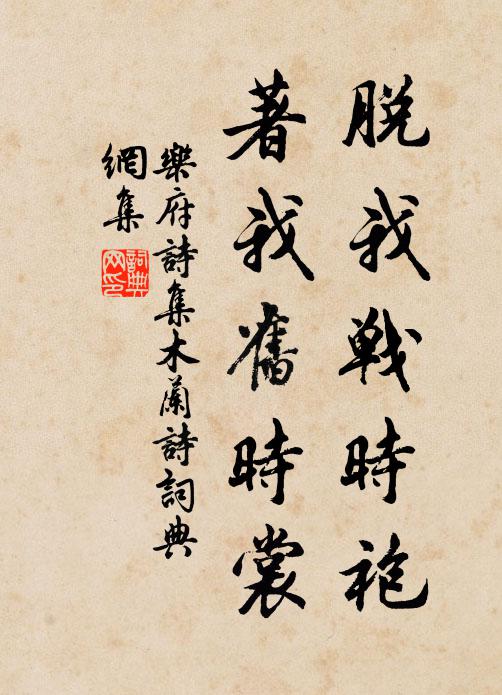 脱我戦時袍
著我舊時裳
樂府詩集木蘭詩詞典
網集
詞典網印